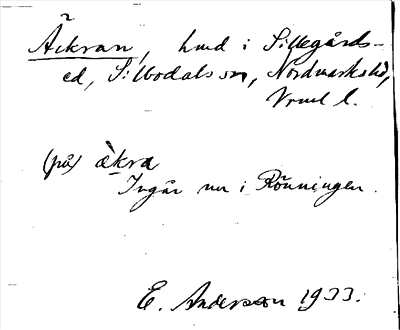 Äckran, hmd i Sillegårds-
ed, Silbodals sn, Nordmarks hd,
Vrml l.
(på) àkra
Ingår nu i Rönningen.
E. Andersson 1933.